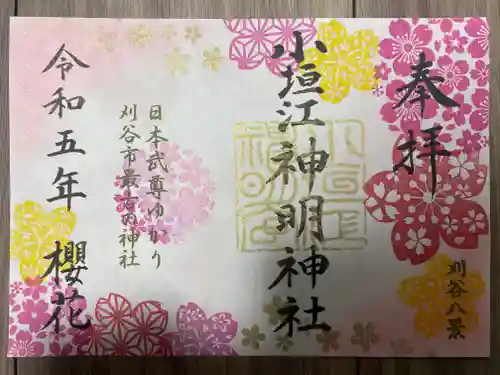 奉拝
刈谷八景
小垣江神明神社
日本武尊ゆかり
刈谷市最古の神社
令和五年 櫻花